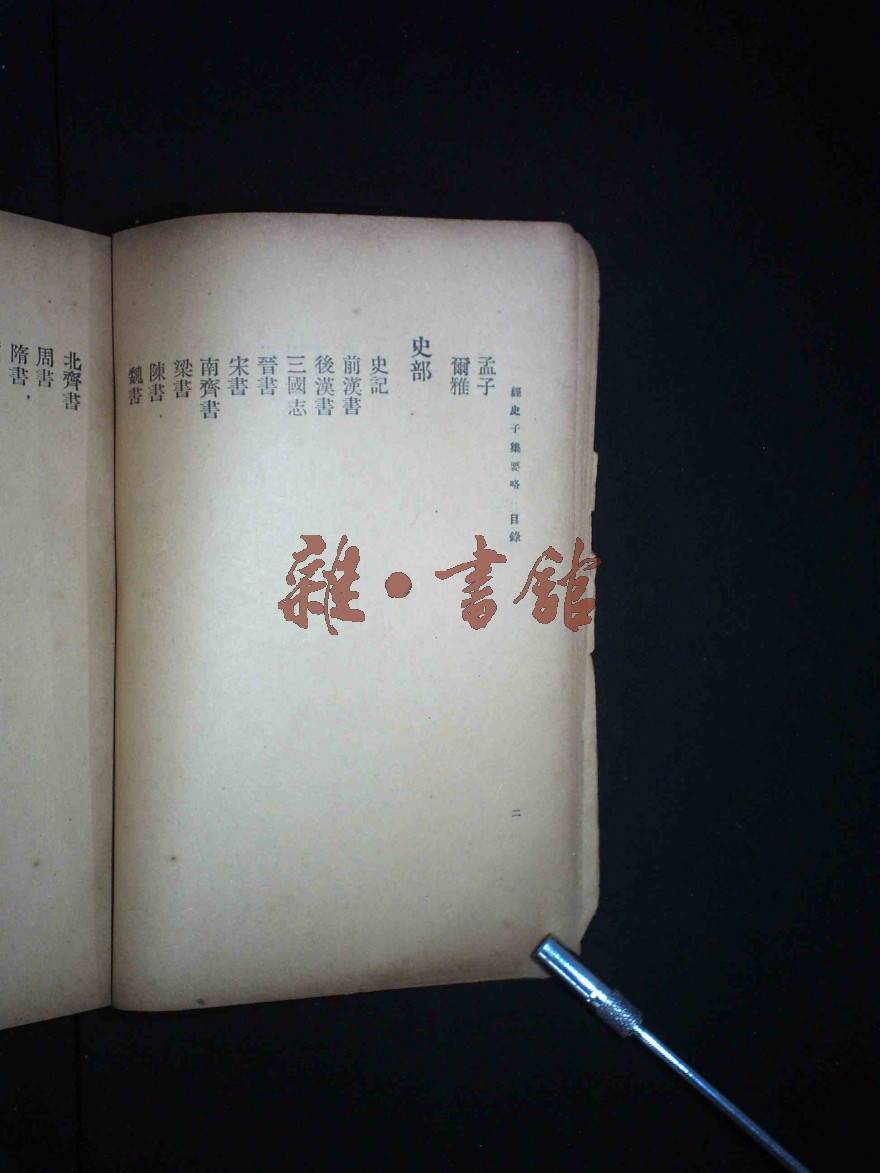 經史子集要略 目錄
二
孟子
爾雅
史部
史記
前漢書
後漢書
三國志
晉書
宋書
南齊書
梁書
陳書
魏書
北齊書
周書
隋書
雜·書館